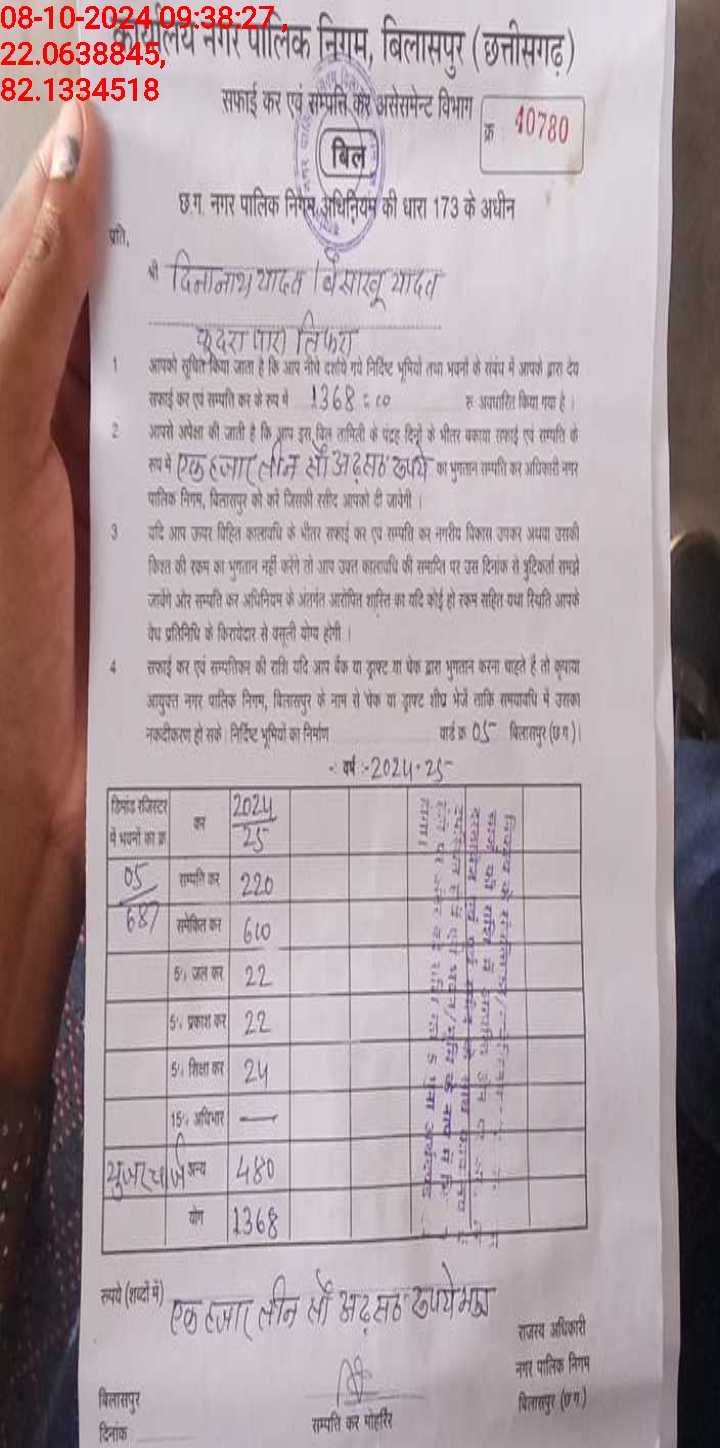 08-10-2024 09:38:27,
22.0638845,
82.1334518
कार्यालय नगर पालिक निगम, बिलासपुर (छत्तीसगढ़)
सफाई कर एवं सम्पत्ति कर असेसमेन्ट विभाग
क्र 40780
बिल
छ.ग. नगर पालिक निगम अधिनियम की धारा 173 के अधीन
प्रति,
श्री दिनानाथ यादव / बैसाखू यादव
कुदरा पारा तिफरा
1 आपको सूचित किया जाता है कि आप नीचे दर्शाये गये निर्दिष्ट भूमियों तथा भवनों के संबंध में आपके द्वारा देय
सफाई कर एवं सम्पत्ति कर के रूप में 1368=00 रू अवधारित किया गया है।
2 आपसे अपेक्षा की जाती है कि आप इस बिल तामिली के पंद्रह दिनों के भीतर बकाया सफाई एवं सम्पत्ति के
रूप में एक हजार तीन सौ अढ़सठ रूपये का भुगतान सम्पत्ति कर अधिकारी नगर
पालिक निगम, बिलासपुर को करे जिसकी रसीद आपको दी जावेगी।
3 यदि आप ऊपर विहित कालावधि के भीतर सफाई कर एवं सम्पत्ति कर नगरीय विकास उपकर अथवा उसकी
किश्त की रकम का भुगतान नहीं करेंगे तो आप उक्त कालावधि की समाप्ति पर उस दिनांक से त्रुटिकर्ता समझे
जायेंगे और सम्पत्ति कर अधिनियम के अंतर्गत आरोपित शास्ति का यदि कोई हो रकम सहित यथा स्थिति आपके
वैध प्रतिनिधि के किरायेदार से वसूली योग्य होगी।
4 सफाई कर एवं सम्पत्तिकर की राशि यदि आप बैंक या ड्राफ्ट या चेक द्वारा भुगतान करना चाहते है तो कृपया
आयुक्त नगर पालिक निगम, बिलासपुर के नाम से चेक या ड्राफ्ट शीघ्र भेजें ताकि समयावधि में उसका
नकदीकरण हो सके। निर्दिष्ट भूमियों का निर्माण वार्ड क्र 05 बिलासपुर (छ.ग.)।
-: वर्ष :-2024-25
डिमांड रजिस्टर में भवनों का क्र कर 2024/25
05/687 सम्पत्ति कर 220
समेकित कर 600
5% जल कर 22
5% प्रकाश कर 22
5% शिक्षा कर 24
15% अधिभार —
युजर चार्ज अन्य 480
योग 1368
रूपये (शब्दों में) एक हजार तीन सौ अढ़सठ रूपये मात्र
राजस्व अधिकारी
नगर पालिक निगम
बिलासपुर (छ.ग.)
बिलासपुर
दिनांक
सम्पत्ति कर मोहर्रिर